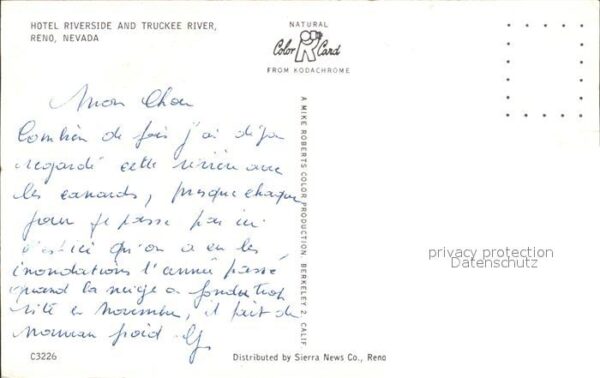 HOTEL RIVERSIDE AND TRUCKEE RIVER,
RENO, NEVADA
NATURAL
Color Card
FROM KODACHROME
Mon Chou
Combien de fois j'ai déja
regardé cette rivière avec
les canards, presque chaque
jour je passe par ici
c'est ici qu'on a eu les
inondations l'année passé,
quand la neige a fondu
vite en Novembre, il fait de
nouveau froid
A MIKE ROBERTS COLOR PRODUCTION, BERKELEY 2, CALIF.
privacy protection
Datenschutz
C3226
Distributed by Sierra News Co., Reno